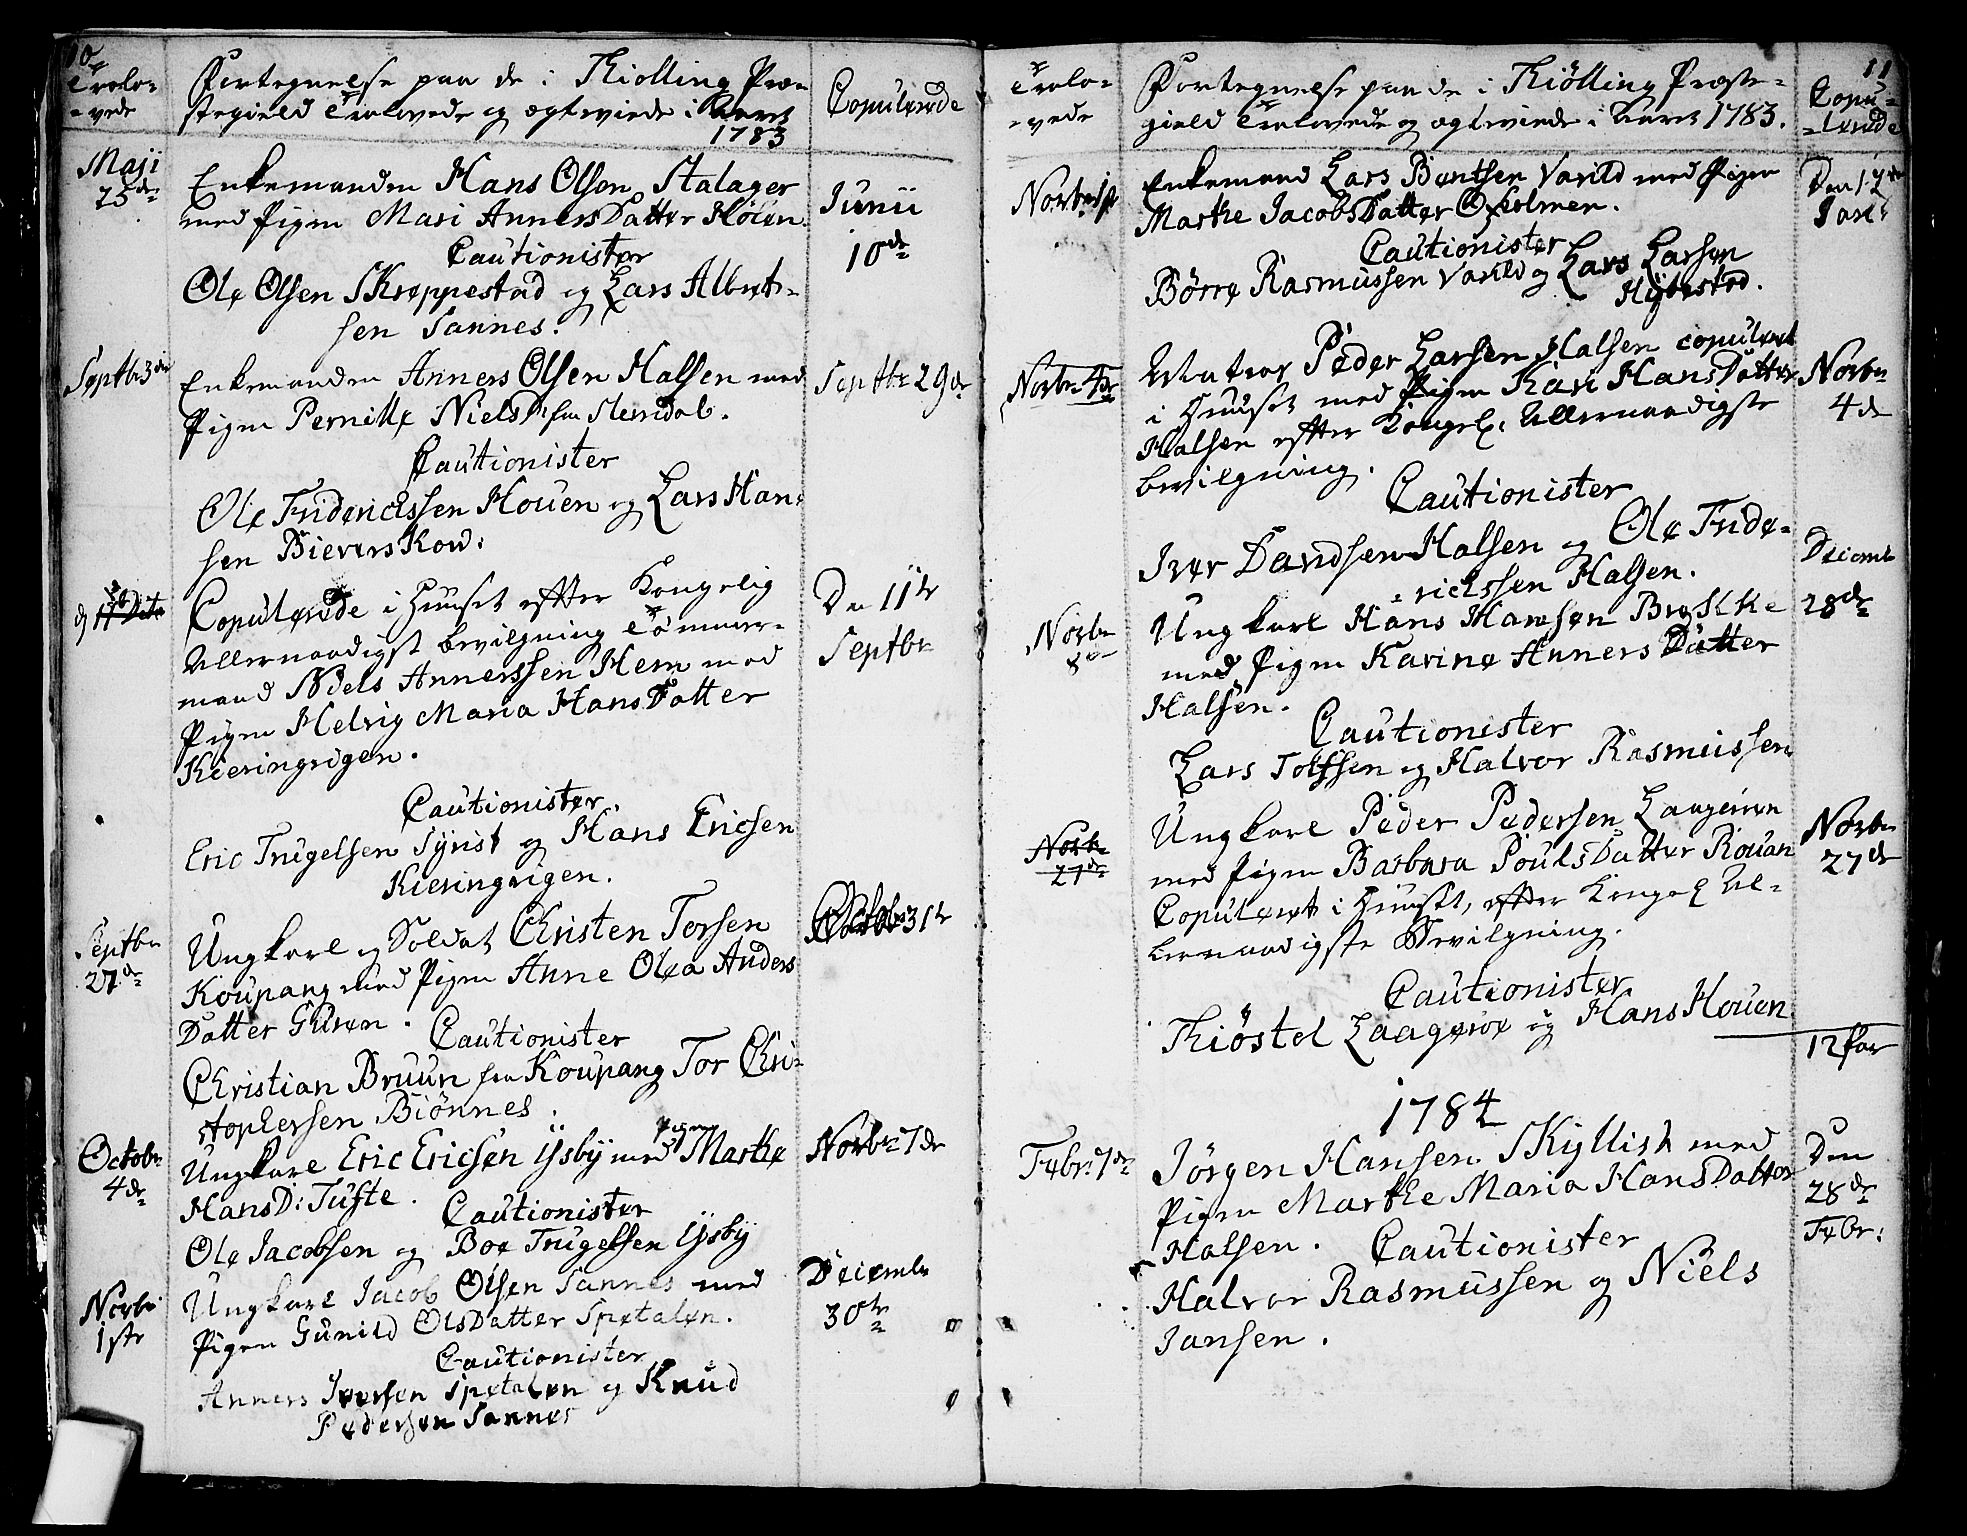 10
Trolo-
-vede
Fortegnelse paa de i Thiølling Præ-
stegield Trolovede og ægteviede i Aaret
1783
Copulerede
Maji
25de
Enkemanden Hans Olsen Stalager
med Pigen Mari AnnersDatter Hølen.
Cautionister
Ole Olsen Skreppestad og Lars Albret-
sen Sannes.
Junii
10de
Septbr 3die
Enkemanden Anners Olsen Halsen med
Pigen Pernille NielsD: fra
Cautionister
Ole Friderichssen Houen og Lars Han-
sen Bieverskow.
Septbr 29de
Copulerede i Huuset efter Kongelig
Allernaadigst bevilgning Tømmer-
mand Niels Annerssen Hem med
Pigen Helvig Maria HansDatter
Kieringvigen.
Cautionister.
Eric Trugelsen Syrist og Hans Ericsen
Kieringvigen.
Den 11te
Septbr
Septbr
27de
Ungkarl og Soldat Christen Torsen
Koupang med Pigen Anne Olea Anders
Datter
Cautionister
Christian Bruun fra Koupang Tor Chri-
stophersen Biønnes.
Octobr 31te
Octobr
4de
Ungkarl Eric Ericsen Ysby med Pigen Marthe
HansD: Tufte.
Cautionister
Ole Jacobsen og Boe Trugelsen Ysby
Novbr 7de
Novbr
1ste
Ungkarl Jacob Olsen Sannes med
Pigen Gunild OlsDatter Spetalen.
Cautionister
Anners Iversen Spetalen og Knud
Pedersen Sannes
Decembr
30te
11
Trolo-
-vede
Fortegnelse paa de i Thiølling Præste-
gield Trolovede og ægteviede i Aaret 1783.
Copu-
-lerede
Novbr 1ste
Enkemand Lars Bentsen Varild med Pigen
Marthe JacobsDatter Oxholmen.
Cautionister
Børre Rasmussen Varild og Lars Larsen
Hybestad.
Den 12te
Jan:
Novbr 4de
Matros Peder Larsen Halsen copuleret
i Huuset med Pigen Kari HansDatter
Halsen efter Kongel: Allernaadigste
bevilgning.
Cautionister
Iver Davidsen Halsen og Ole Fride-
-richssen Halsen.
Novbr
4de
Novbr
8de
Ungkarl Hans Hansen Brekke
med Pigen Karine Anners Datter
Halsen.
Cautionister
Lars Tolfsen og Halvor Rasmussen
Decembr
28de
Novbr
27de
Ungkarl Peder Pedersen Laagerøen
med Pigen Barbara PoulsDatter Rouan
Copuleret i Huuset, efter Kongel Al-
lernaadigste Bevilgning.
Cautionister
Thiøstel Laagerøe og Hans Houen
Novbr
27de
12 par
1784
Febr: 7de
Jørgen Hansen Skyllist med
Pigen Marthe Maria HansDatter
Halsen.
Cautionister
Halvor Rasmussen og Niels
Jansen.
Den
28de
Febr: